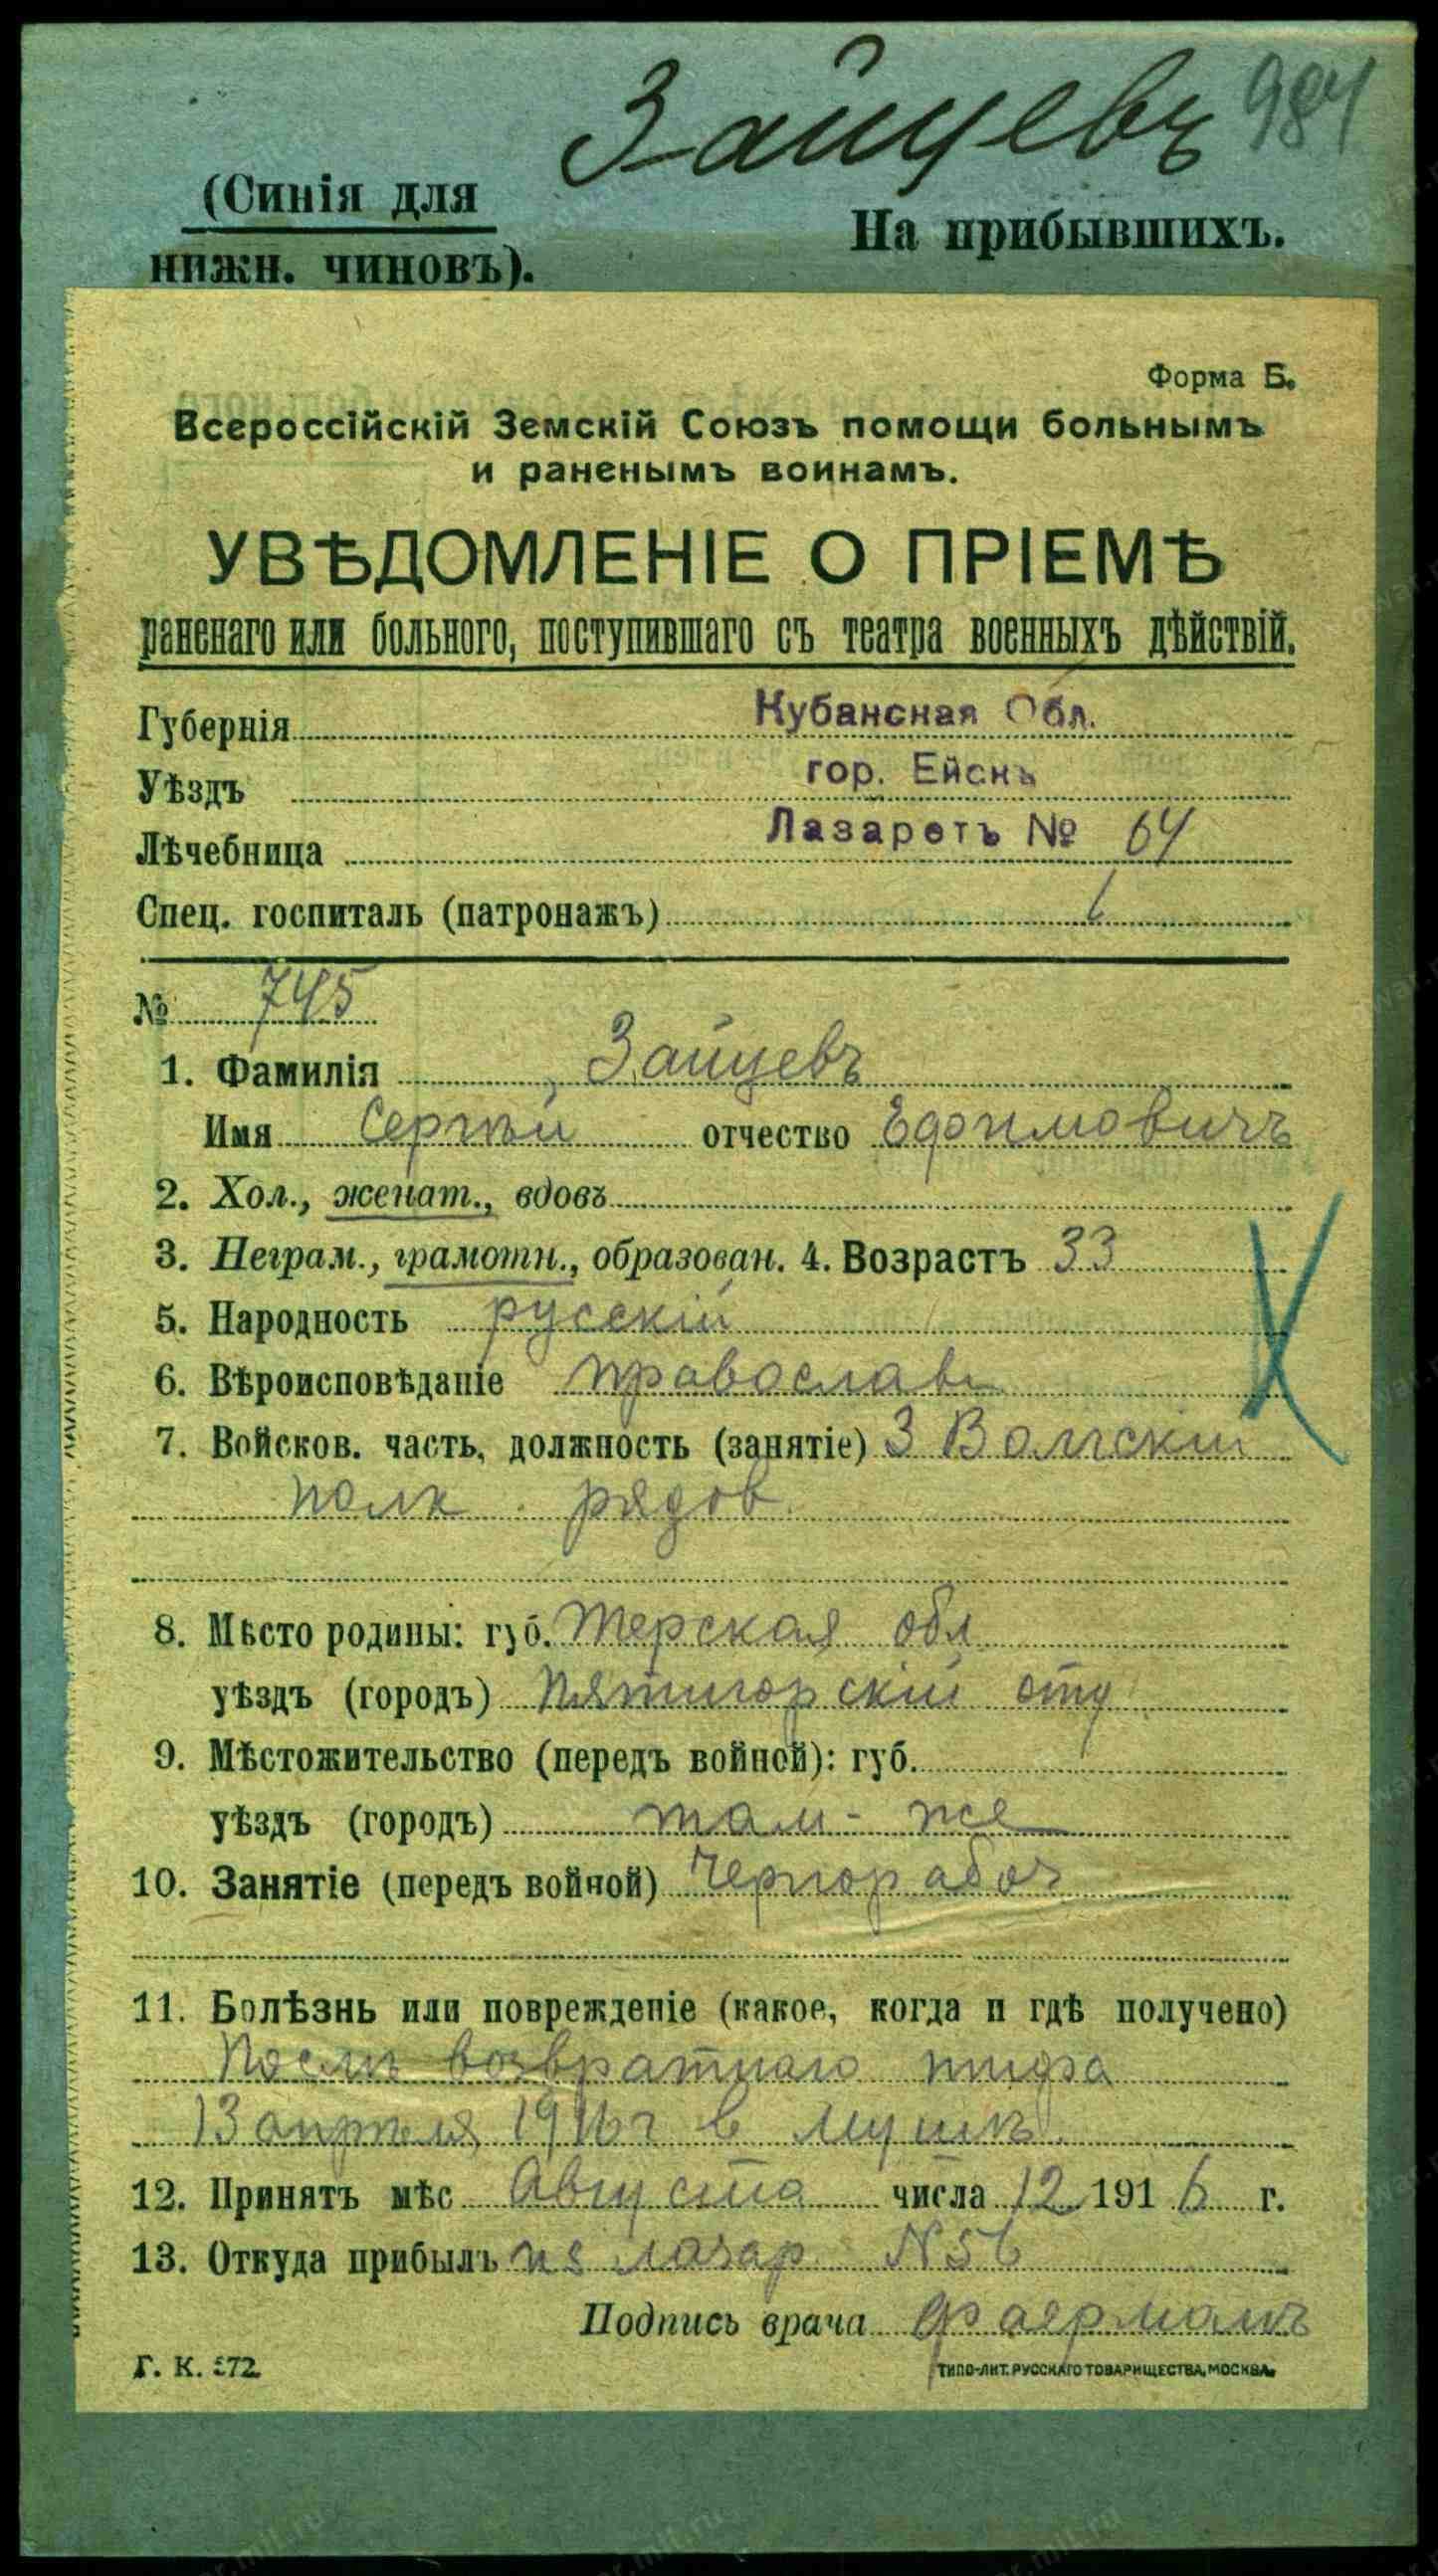 Зайцевъ 984
(Синія для
нижн. чиновъ).
На прибывшихъ.
Форма Б.
Всероссійскій Земскій Союзъ помощи больнымъ
и раненымъ воинамъ.
УВѢДОМЛЕНІЕ О ПРІЕМѢ
раненаго или больного, поступившаго съ театра военныхъ дѣйствій.
Губернія Кубанская Обл.
Уѣздъ гор. Ейскъ
Лѣчебница Лазаретъ № 64
Спец. госпиталь (патронажъ)
№ 745
1. Фамилія Зайцевъ
Имя Сергѣй отчество Ефимовичъ
2. Хол., женат., вдовъ
3. Неграм., грамотн., образован. 4. Возрастъ 33
5. Народность русскій
6. Вѣроисповѣданіе православ
7. Войсков. часть, должность (занятіе) 3 Волгскій
полк рядов.
8. Мѣсто родины: губ. Терская обл
уѣздъ (городъ) Пятигорскій отд
9. Мѣстожительство (передъ войной): губ.
уѣздъ (городъ) там-же
10. Занятіе (передъ войной) Чернорабоч
11. Болѣзнь или поврежденіе (какое, когда и гдѣ получено)
Послѣ возвратнаго тифа
13 апрѣля 1916 г в Мушѣ
12. Принятъ мѣс Августа числа 12 1916 г.
13. Откуда прибылъ из лазар N 56
Подпись врача Фаерманъ
Г. К. 572
ТИПО-ЛИТ. РУССКАГО ТОВАРИЩЕСТВА, МОСКВА.